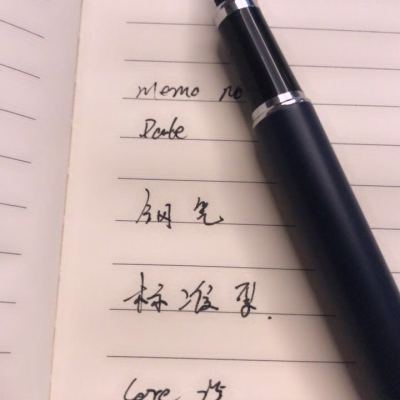 memo no
Date
钢笔
标准型.